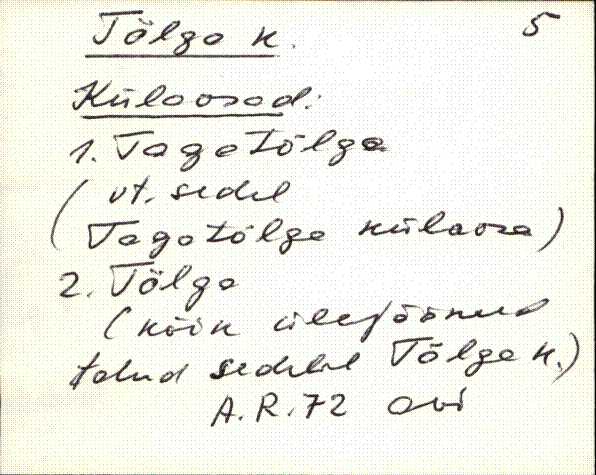 5
Tõlga k.
Külaosad:
1. Tagatõlga
(vt. sedel
Tagatõlga külaosa)
2. Tõlga
(kõik ülejäänud
talud sedelil Tõlga k.)
A.R.72 Avi